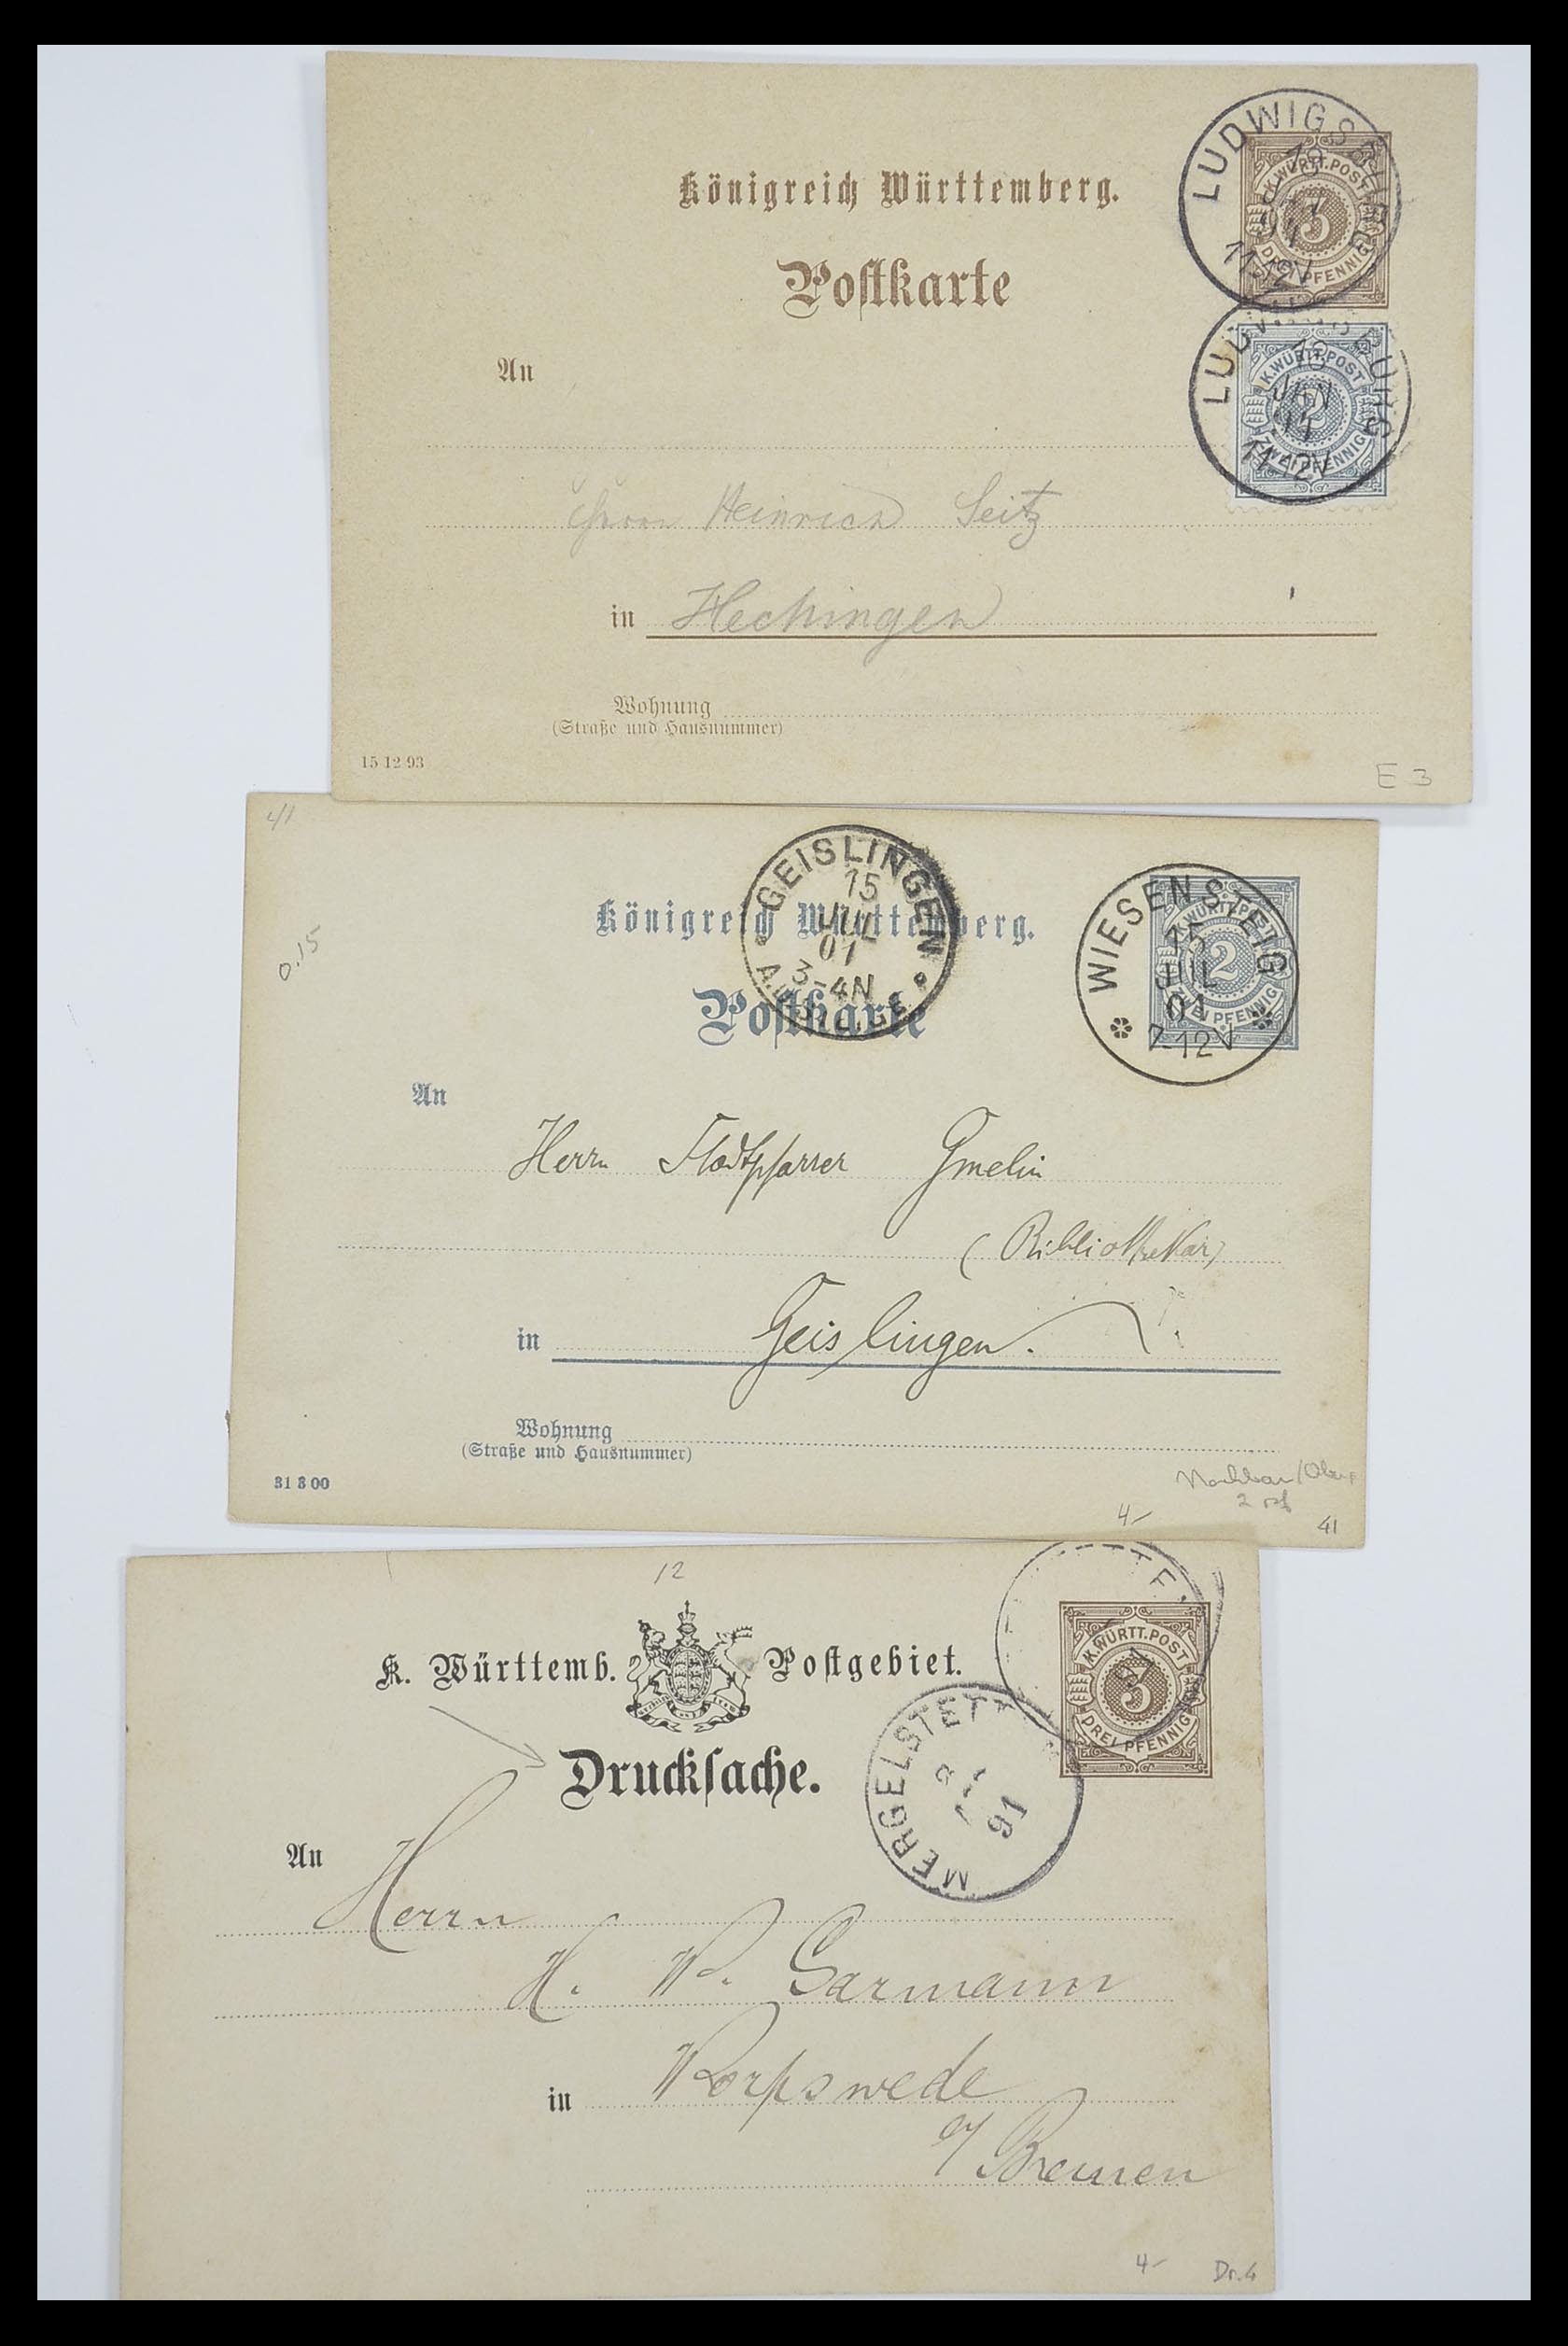 Königreich Württemberg.
Postkarte
LUDWIGSBURG
19
11-12V
K.WÜRTT.POST
3
DREI PFENNIG
LUDWIGSBURG
19
JAN
11-12V
K.WÜRTT.POST
2
ZWEI PFENNIG
An
Herrn Heinrich Seitz
in Hechingen
Wohnung
(Straße und Hausnummer)
15 12 93
E 3
41
0.15
Königreich Württemberg.
Postkarte
GEISLINGEN
15
JUL
01
3-4N
WIESENSTEIG
15
JUL
01
7-12V
K.WÜRTT.POST
2
ZWEI PFENNIG
An
Herrn Stadtpfarrer Gmelin
(Bibliothekar)
in Geislingen.
Wohnung
(Straße und Hausnummer)
31 3 00
2 Pf
4-
41
12
K. Württemb. Postgebiet.
Drucksache.
K.WÜRTT.POST
3
DREI PFENNIG
MERGELSTETT
91
An
Herrn
H. W. Garmann
in Worpswede
a/ Bremen
4-
Dr. 4